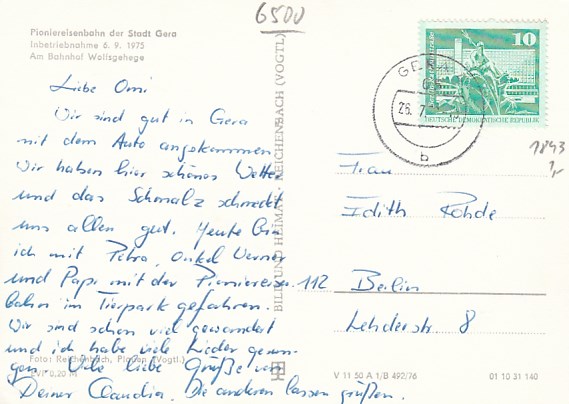 6500
Pioniereisenbahn der Stadt Gera
Inbetriebnahme 6. 9. 1975
Am Bahnhof Wolfsgehege
Liebe Omi
Wir sind gut in Gera
mit dem Auto angekommen.
Wir haben hier schönes Wetter
und das Schmalz schmeckt
uns allen gut. Heute bin
ich mit Petra, Onkel Werner
und Papi mit der Pioniereisen
bahn im Tierpark gefahren.
Wir sind schon viel gewandert
und ich habe viele Lieder gesun-
gen. Viele liebe Grüße von
Deiner Claudia. Die anderen lassen grüßen.
Foto: Reichenbach, Plauen (Vogtl.)
EVP 0,20 M
BILD UND HEIMAT REICHENBACH (VOGTL)
GERA
26. 7.
b
10
DEUTSCHE DEMOKRATISCHE REPUBLIK
1843
1,-
Frau
Edith Rohde
112 Berlin
Lehderstr. 8
V 11 50 A 1/B 492/76
01 10 31 140